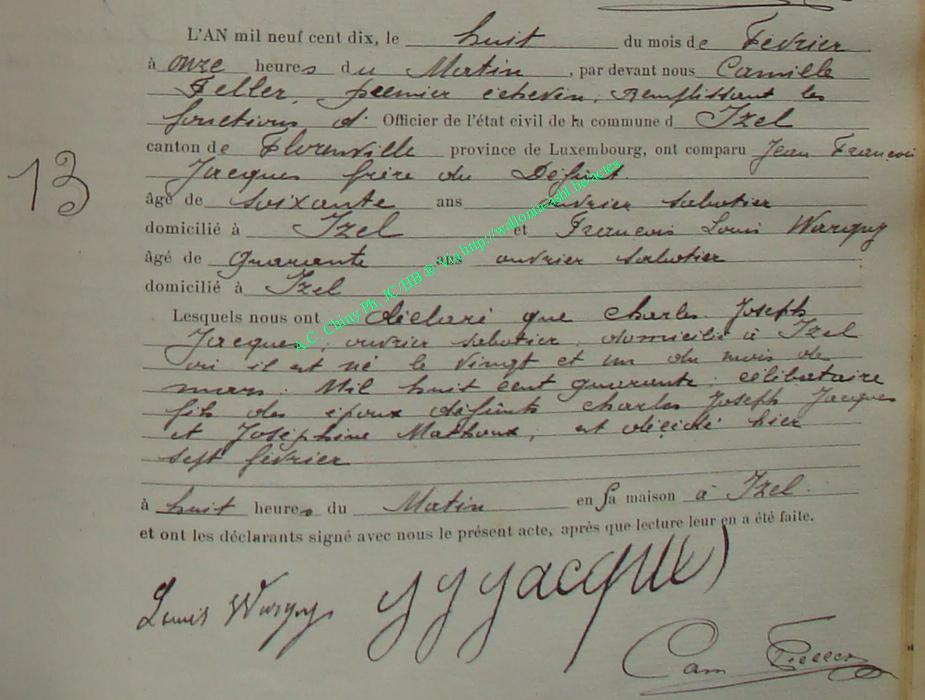 L'AN mil neuf cent dix, le huit du mois de Février
à onze heures du Matin, par devant nous Camille
Feller, premier échevin, remplissant les
fonctions d' Officier de l'état civil de la commune d Izel
canton de Florenville province de Luxembourg, ont comparu Jean François
Jacques frère du Défunt
âgé de soixante ans ouvrier sabotier
13
domicilié à Izel et François Louis Wargny
âgé de quarante ans ouvrier sabotier
domicilié à Izel
Lesquels nous ont déclaré que Charles Joseph
Jacques, ouvrier sabotier, domicilié à Izel
où il est né le vingt et un du mois de
mars Mil huit cent quarante, célibataire
fils des époux défunts Charles Joseph Jacques
et Joséphine Mathoux, est décédé hier
sept février
à huit heures du Matin en sa maison à Izel.
et ont les déclarants signé avec nous le présent acte, après que lecture leur en a été faite.
Louis Wargny JJ Jacques
Cam Feller
A.C. Chiny Ph. JC/HB ® Via http://wallonia-asbl.be/actes